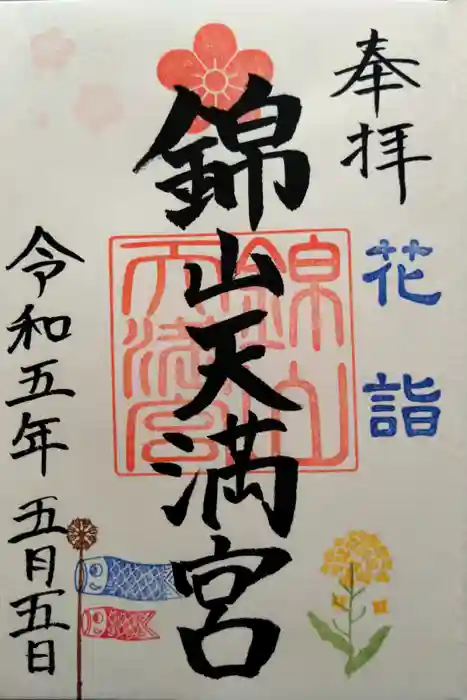 奉拝
花詣
錦山天満宮
錦山天満宮
令和五年 五月五日